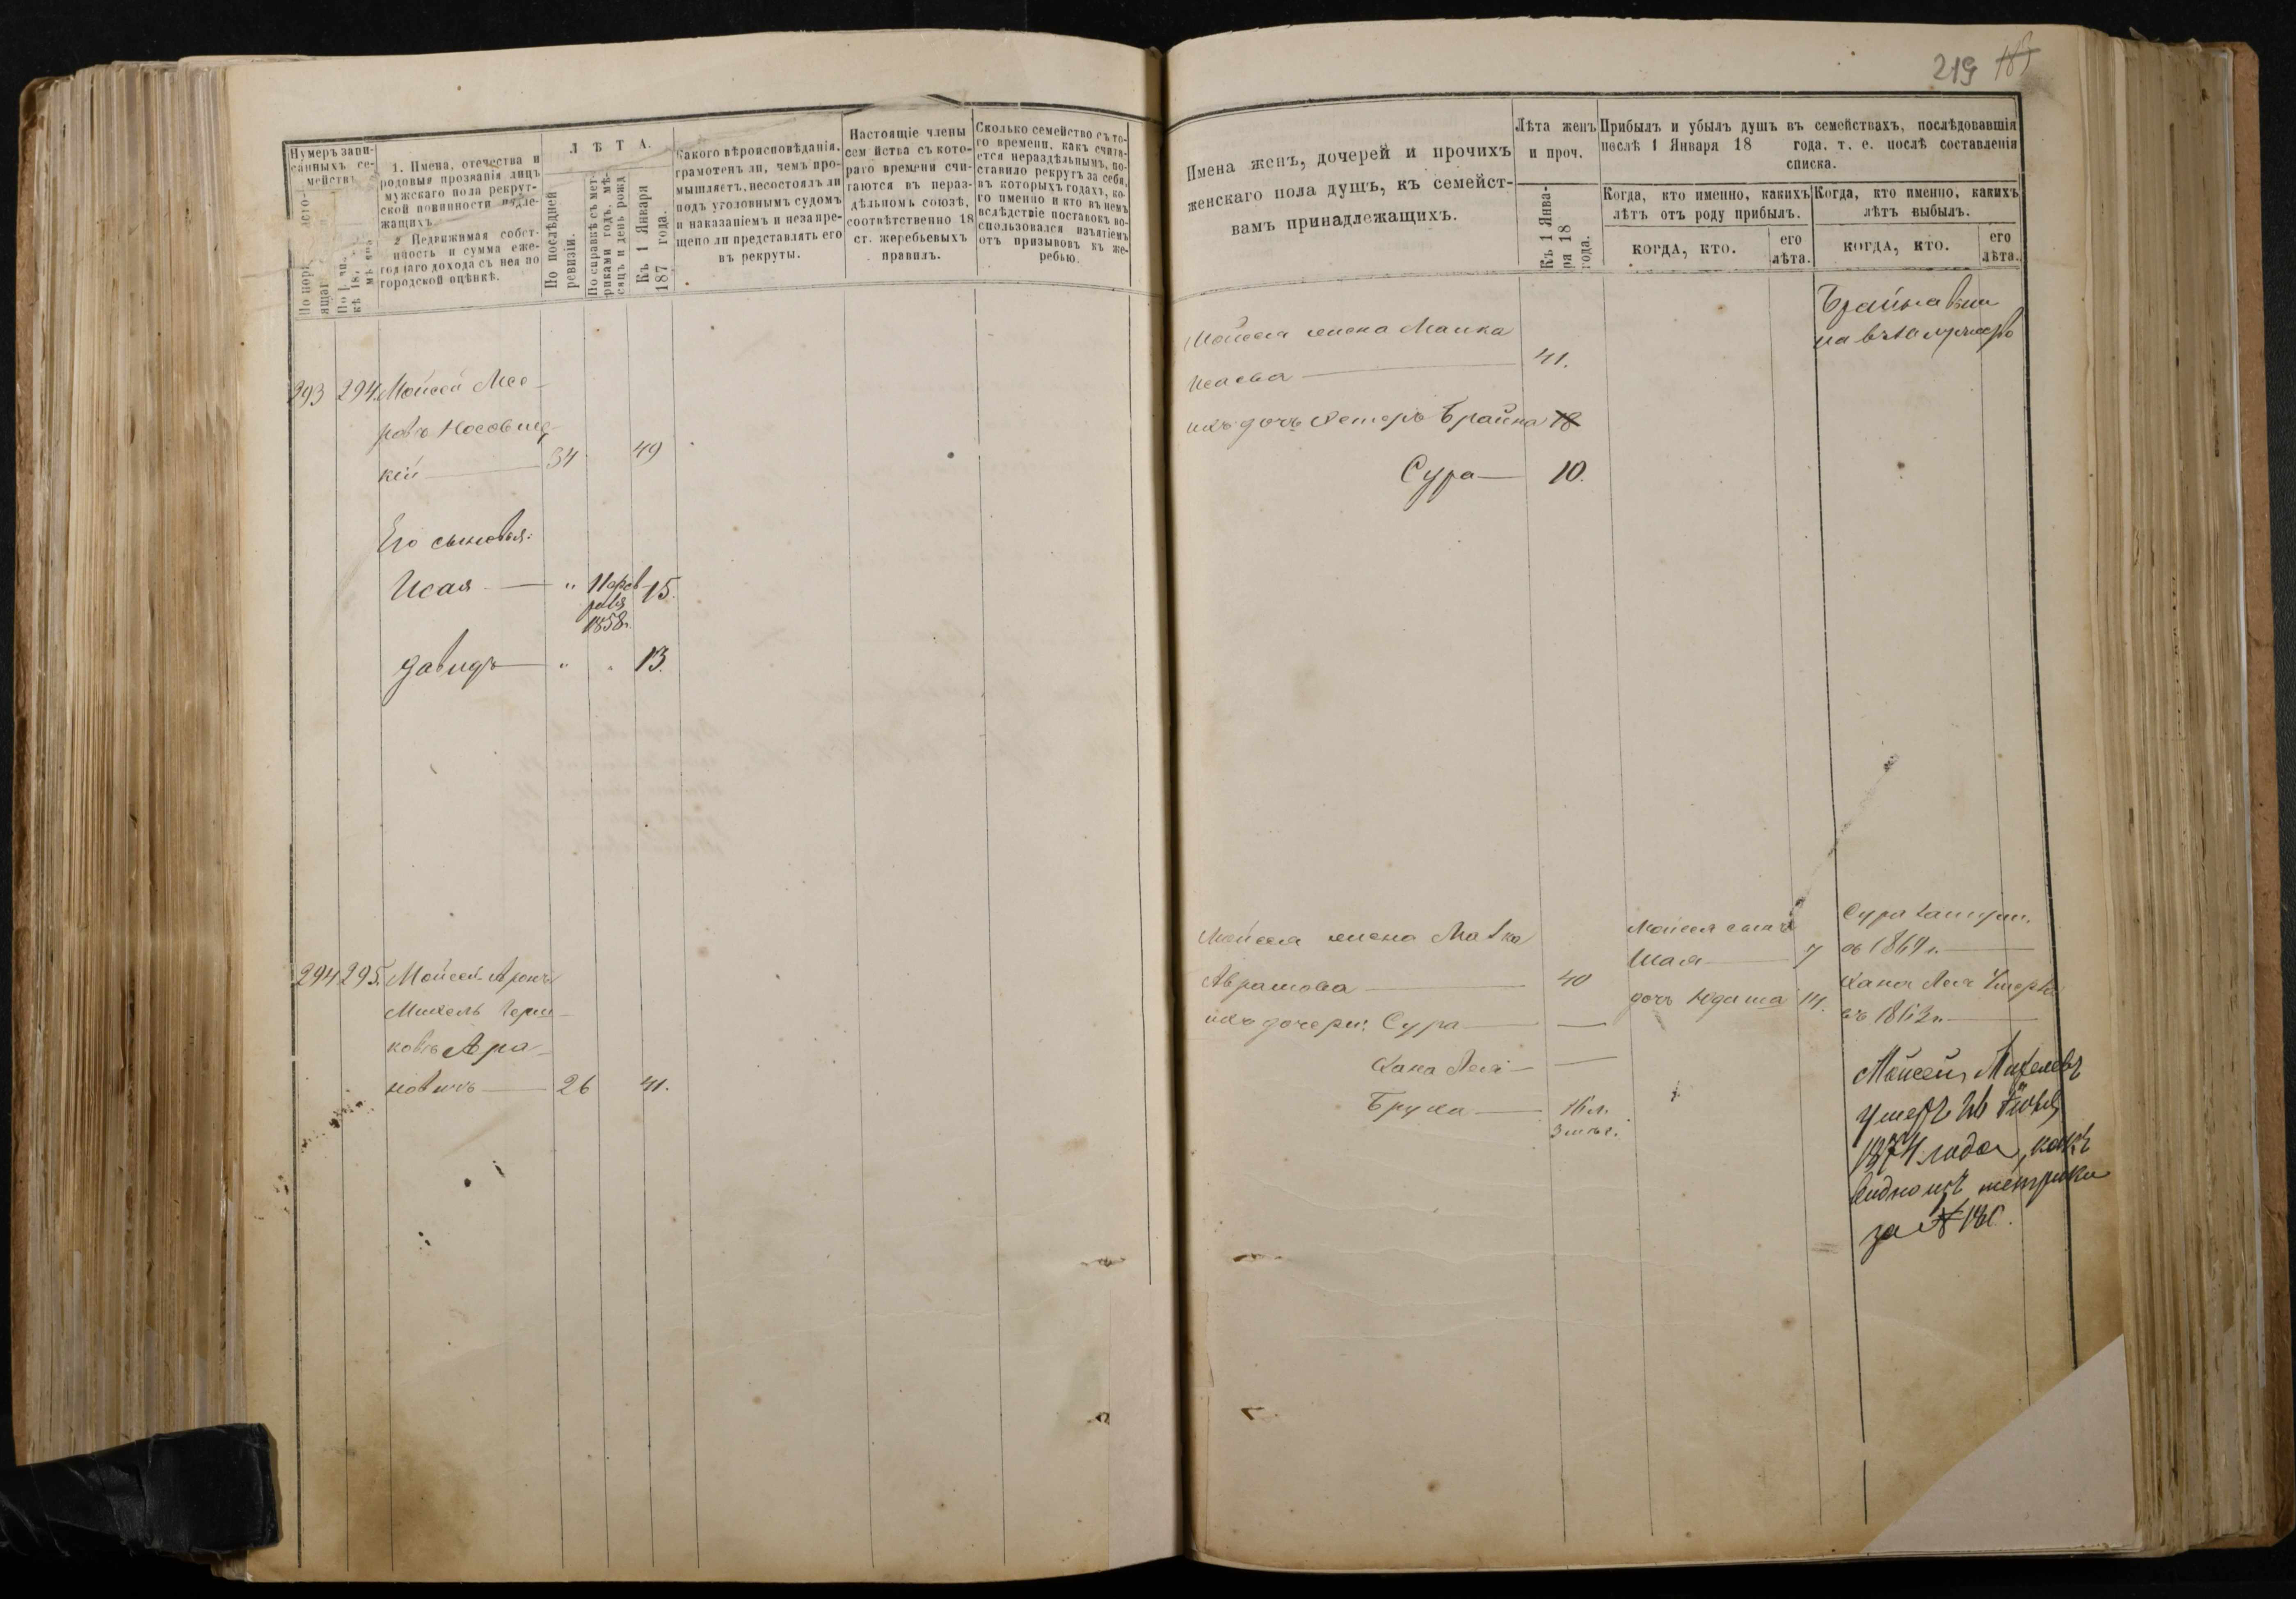 219 185
Нумеръ запи-
санныхъ се-
мействъ
1. Имена, отечества и
родовыя прозванія лицъ
мужскаго пола рекрут-
ской повинности подле-
жащихъ.
2 Недвижимая собст-
нность и сумма еже-
годнаго дохода съ нея по
городской оцѣнкѣ.
ЛѢТА.
По послѣдней
ревизіи.
По справкѣ съ мет-
риками годъ, мѣ-
сяцъ и день рожд
Къ 1 Января
187 года.
Какого вѣроисповѣданія,
грамотенъ ли, чемъ про-
мышляетъ, несостоялъ ли
подъ уголовнымъ судомъ
и наказаніемъ и незапре-
щено ли представлять его
въ рекруты.
Настоящіе члены
семейства съ кото-
раго времени счи-
таются въ нераз-
дѣльномъ союзѣ,
соотвѣтственно 18
ст. жеребьевыхъ
правилъ.
Сколько семейство съ то-
го времени, какъ счита-
ется нераздѣльнымъ, по-
ставило рекрутъ за себя,
въ которыхъ годахъ, ко-
го именно и кто въ немъ
вслѣдствіе поставокъ во-
спользовался изъятіемъ
отъ призывовъ къ же-
ребью.
293 294. Мойсей Лсе-
ровъ Носовиц-
кій 34 49
Его сыновья:
Исая " 15.
1858г.
Давидъ " " 13.
294 295. Мойсей-Аронъ
Михель Герш-
ковъ Ара-
новичъ 26 41.
Имена женъ, дочерей и прочихъ
женскаго пола душъ, къ семейст-
вамъ принадлежащихъ.
Лѣта женъ
и проч.
Къ 1 Янва-
ра 18
года.
Прибылъ и убылъ душъ въ семействахъ, послѣдовавшія
послѣ 1 Января 18 года, т. е. послѣ составленія
списка.
Когда, кто именно, какихъ
лѣтъ отъ роду прибылъ.
Когда, кто именно, какихъ
лѣтъ выбылъ.
КОГДА, КТО.
его
лѣта.
КОГДА, КТО.
его
лѣта.
Мойсея жена Малка
Исаева 41.
ихъ дочь Эстеръ Брайна 18
Сура 10.
Брайна
Мойсея жена
Аврамова 40
ихъ дочери: Сура —
Хана Лея —
Бруха
Мойсея сынъ
Шая 7
дочь Юдаша 14.
Сура
въ 1869 г.
Хана Лея умерла
въ
Мойсей Михелевъ
умеръ Іюня
1874 года, какъ
видно изъ метрики
за №